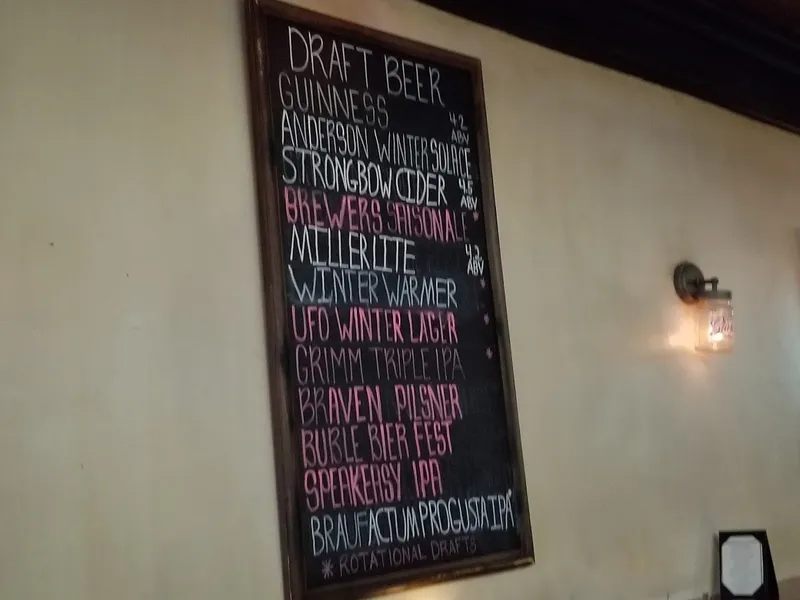 DRAFT BEER
GUINNESS 4.2 ABV
ANDERSON WINTER SOLACE
STRONGBOW CIDER 4.5 ABV
BREWERS SAISONALE *
MILLER LITE 4.2 ABV
WINTER WARMER *
UFO WINTER LAGER *
GRIMM TRIPLE IPA *
BRAVEN PILSNER
BURLE BIER FEST
SPEAKEASY IPA
BRAUFACTUM PROGUSTA IPA
* ROTATIONAL DRAFTS